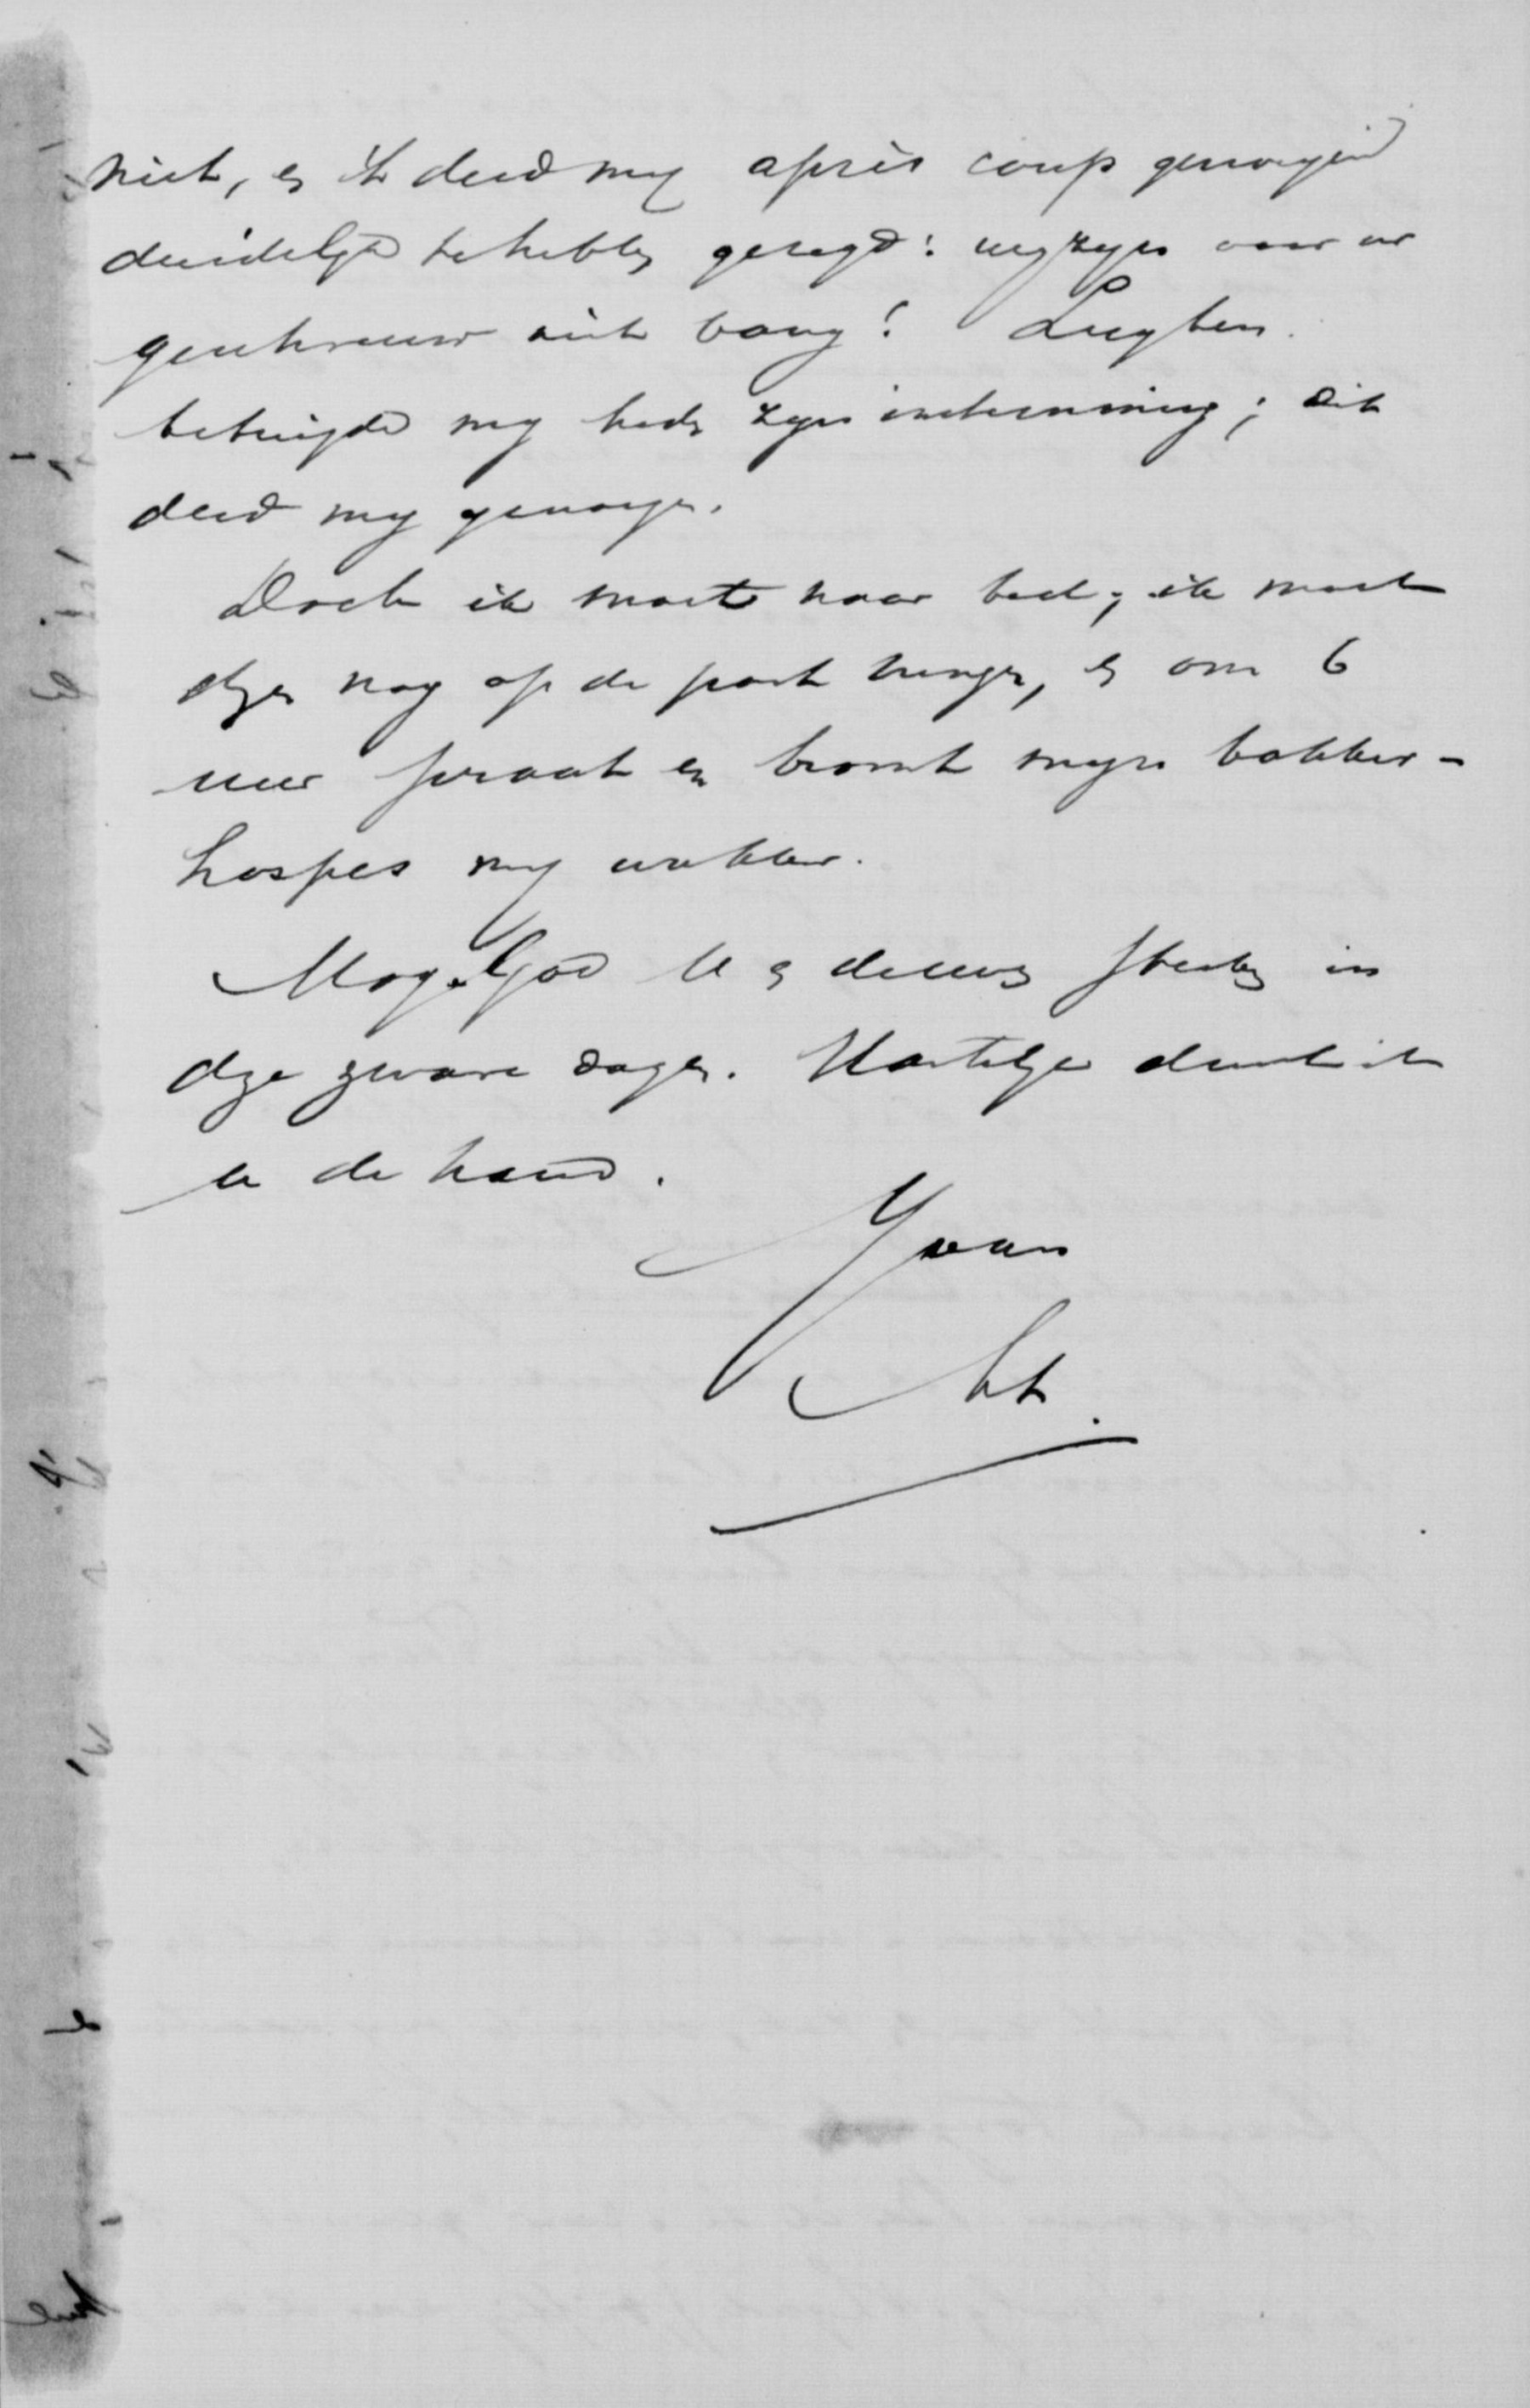 niet, en 't deed mij après coup genoegen
duidelijk te hebben gezegd: wij zijn voor uw
geschreeuw niet bang! Luyten
betuigde mij heden zijn instemming; dit
deed mij genoegen.
Doch ik moet naar bed; ik moet
dezen nog op de post brengen, en om 6
uur praat en bromt mijn bakker-
hospes mij wakker.
Moge God U en de uwen sterken in
deze zware dagen. Hartelijk druk ik
u de hand.